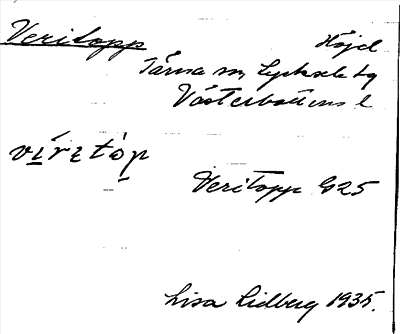 Veritopp Höjd
Tärna sn, Lycksele lg
Västerbottens l
vi̱ri̱to̱p
Veritopp G25
Lisa Lidberg 1935.